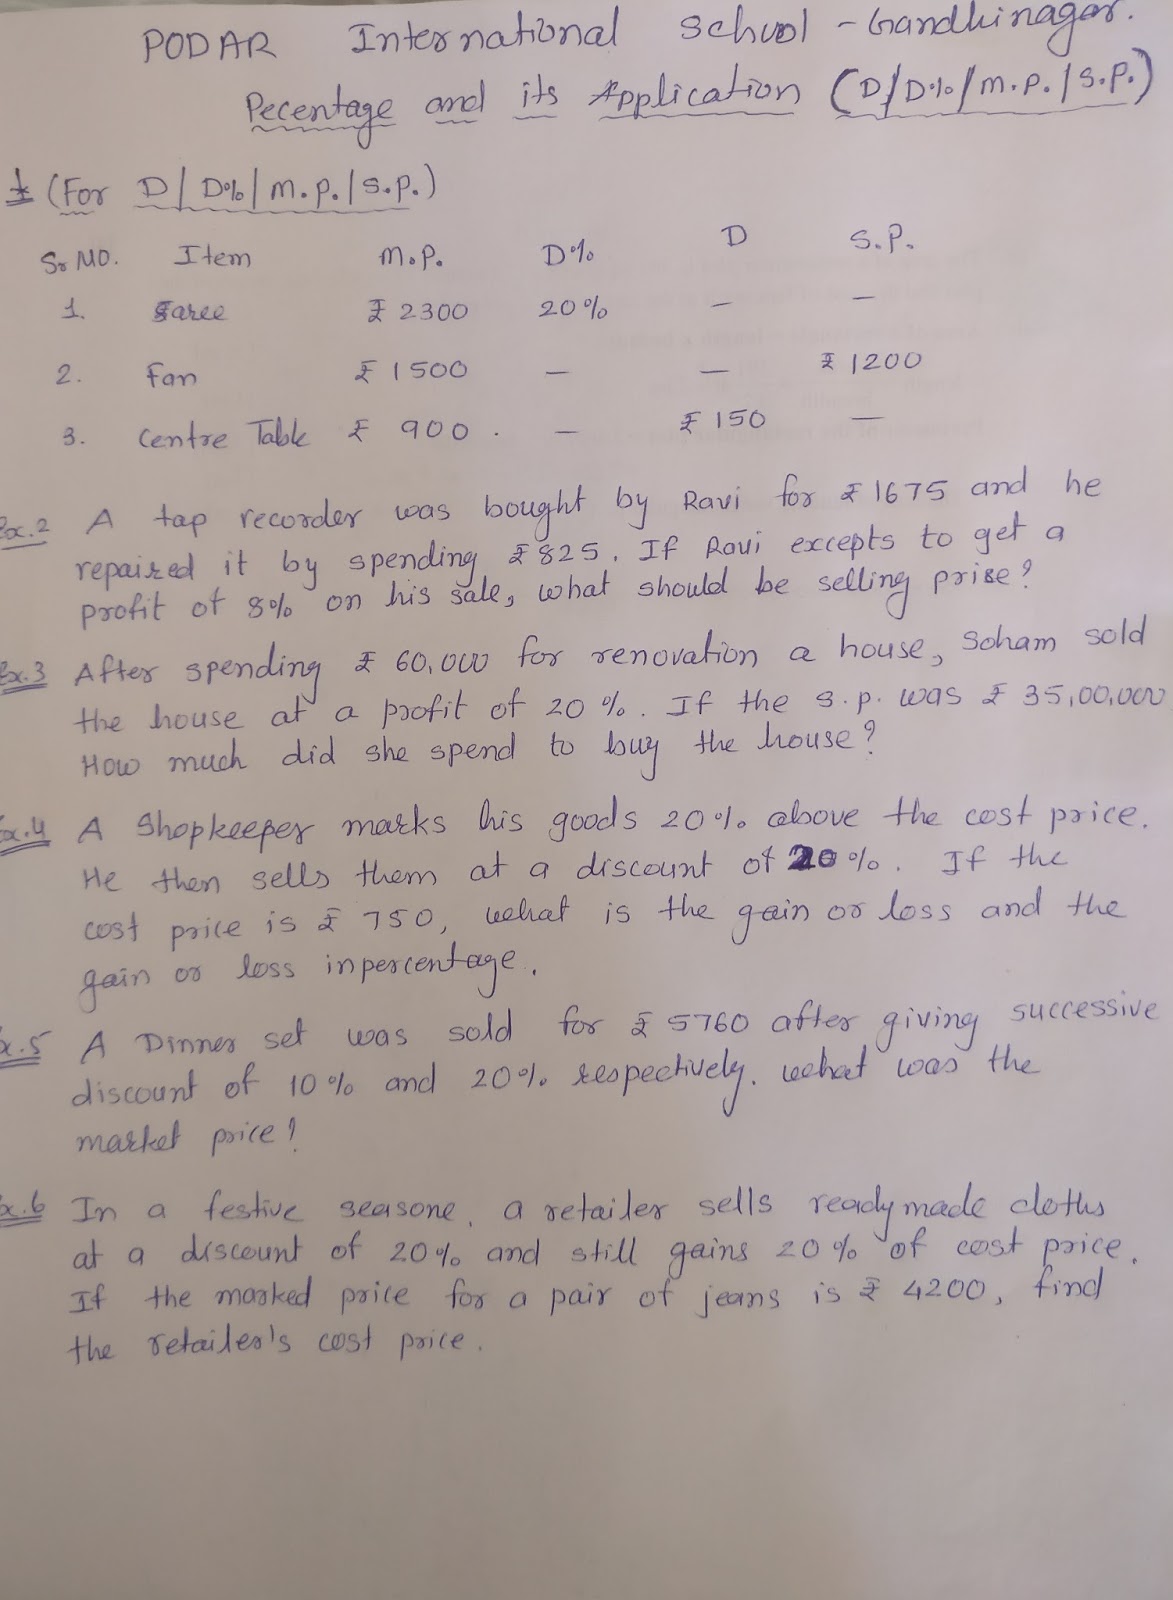 PODAR International School - Gandhinagar.
Pecentage and its Application (D/D%/M.P./S.P.)
1 (For D/D%/M.P./S.P.)
Sr NO. Item M.P. D% D S.P.
1. Saree ₹ 2300 20% — —
2. Fan ₹ 1500 — — ₹ 1200
3. Centre Table ₹ 900. — ₹ 150 —
Ex.2 A tap recorder was bought by Ravi for ₹ 1675 and he
repaired it by spending ₹ 825. If Ravi excepts to get a
profit of 8% on his sale, what should be selling prise?
Ex.3 After spending ₹ 60,000 for renovation a house, Soham sold
the house at a profit of 20%. If the S.P. was ₹ 35,00,000
How much did she spend to buy the house?
Ex.4 A Shopkeeper marks his goods 20% above the cost price.
He then sells them at a discount of 20%. If the
cost price is ₹ 750, what is the gain or loss and the
gain or loss in percentage.
Ex.5 A Dinner set was sold for ₹ 5760 after giving successive
discount of 10% and 20% respectively. what was the
market price?
Ex.6 In a festive seasone, a retailer sells readymade cloths
at a discount of 20% and still gains 20% of cost price.
If the marked price for a pair of jeans is ₹ 4200, find
the retailer's cost price.